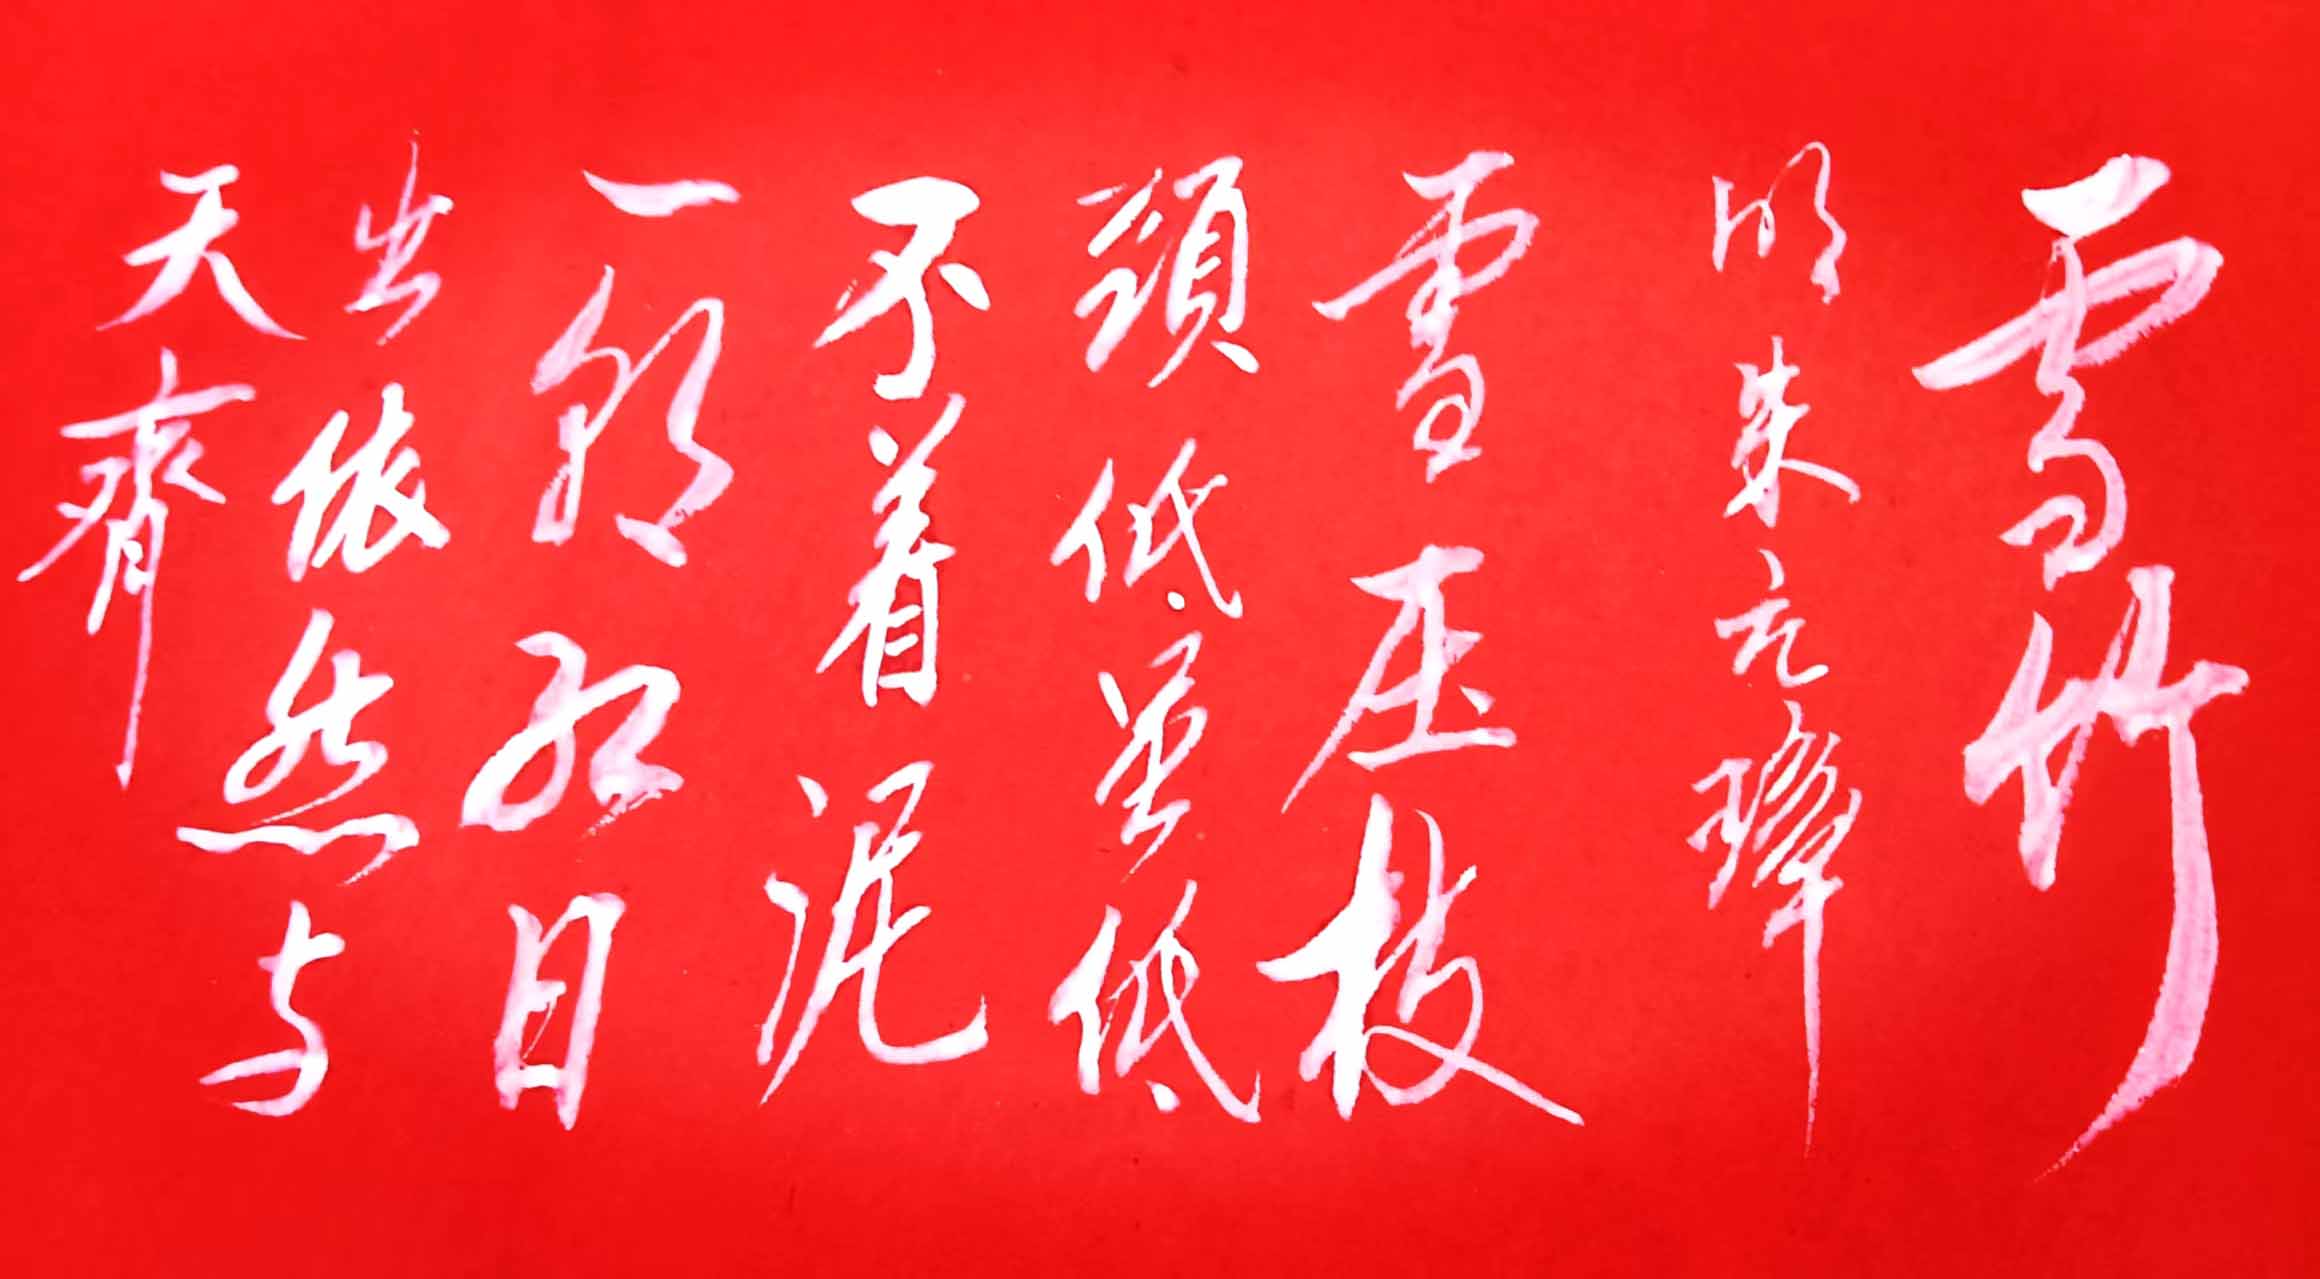 雪竹
明朱元璋
雪压枝
頭低虽低
不着泥
一朝红日
出依然与
天齊